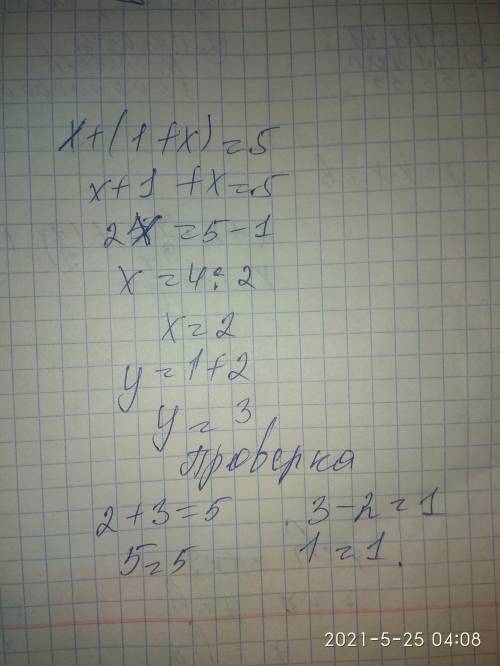 x+(1+x)=5
x+1+x=5
2x=5-1
x=4:2
x=2
y=1+2
y=3
Проверка
2+3=5 3-2=1
5=5 1=1.
2021-5-25 04:08